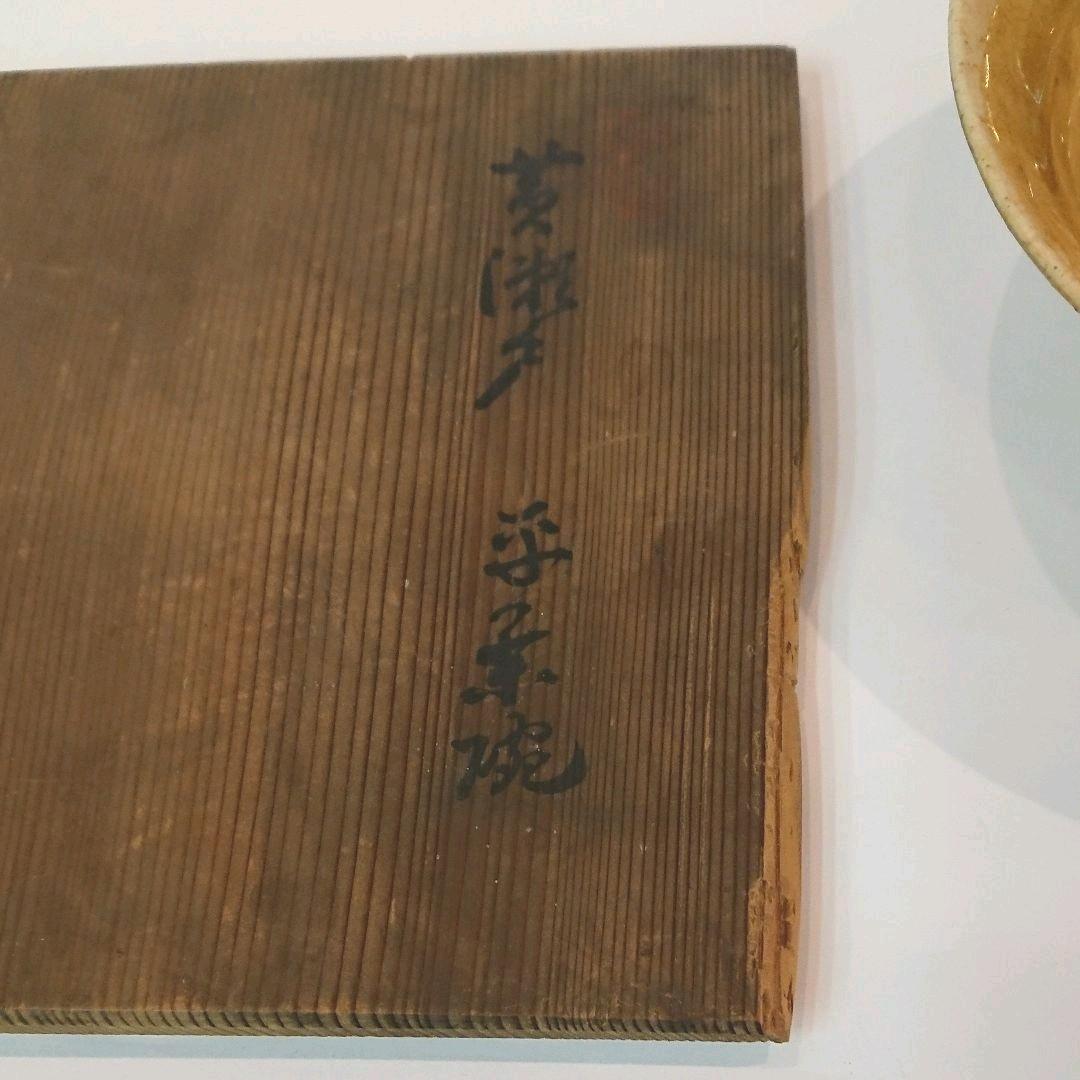 黄瀬戸 平茶碗